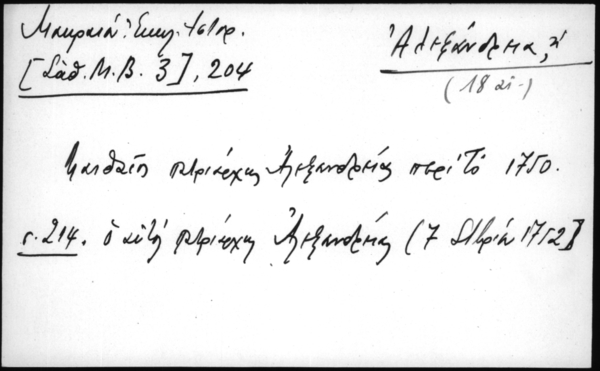 Μακραιά: Ἐκκλ. Ἱστορ.
[Σάθ. Μ.Β. 3], 204
Ἀλεξάνδρεια, ἡ
(18 αἰ.)
Ματθαῖος πατριάρχης Ἀλεξανδρείας περὶ τὸ 1750.
σ. 214. ὁ αὐτὸς πατριάρχης Ἀλεξανδρείας (7 1752]